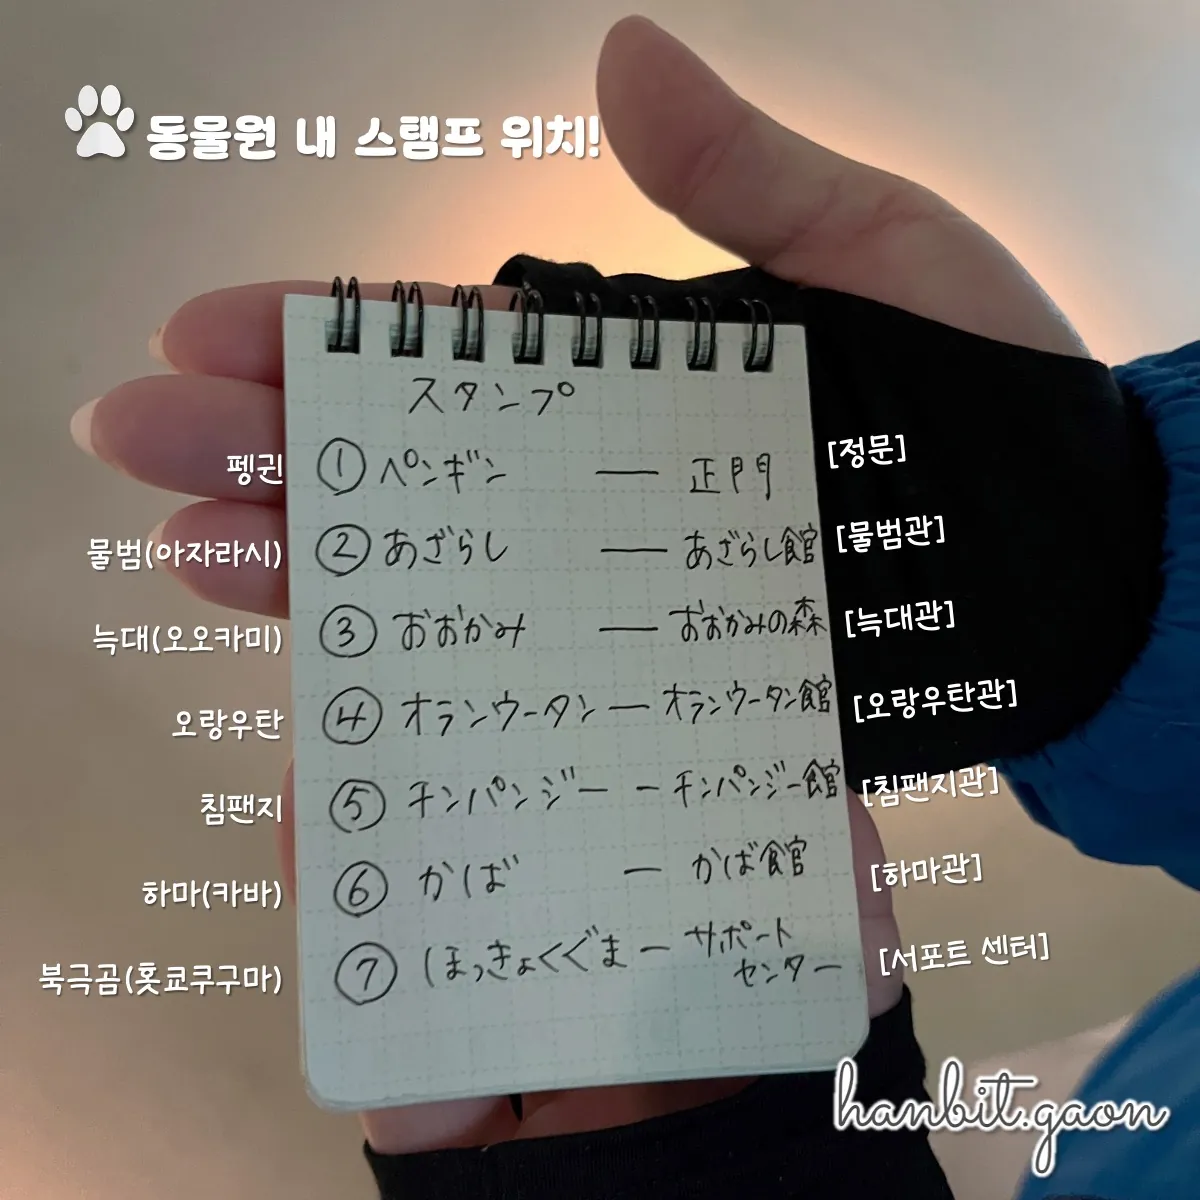 동물원 내 스탬프 위치!
スタンプ
펭귄 ① ペンギン — 正門 [정문]
물범(아자라시) ② あざらし — あざらし館 [물범관]
늑대(오오카미) ③ おおかみ — おおかみの森 [늑대관]
오랑우탄 ④ オランウータン — オランウータン館 [오랑우탄관]
침팬지 ⑤ チンパンジー — チンパンジー館 [침팬지관]
하마(카바) ⑥ かば — かば館 [하마관]
북극곰(홋쿄쿠구마) ⑦ ほっきょくぐま — サポート [서포트 센터]
センター
hanbit.gaon